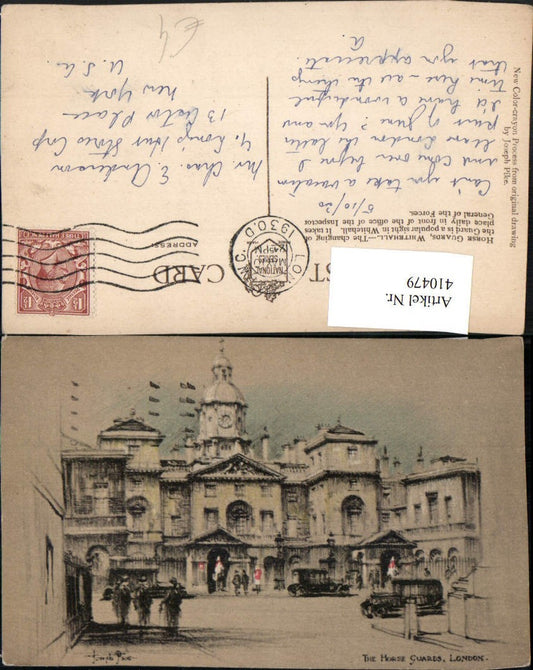 New Color-crayon Process from original drawing
by Joseph Pike.
HORSE GUARDS, WHITEHALL.—The changing of
the Guard is a popular sight in Whitehall. It takes
place daily in front of the office of the Inspector
General of the Forces.
ST CARD
ADDRESS:
LONDON
NATIONAL
2.45PM
1930.D
5/10/30
Can't you take a vacation
and come over before I
leave London the latter
part of June? You and
I'd have a wonderful
time here - all the things
that you appreciate.
A.
Mr Chas. E. Anderson
% Long's Hat Stores Corp
13 Astor Place
New York
U.S.A.
Artikel Nr.
410479
Joseph Pike
THE HORSE GUARDS, LONDON.